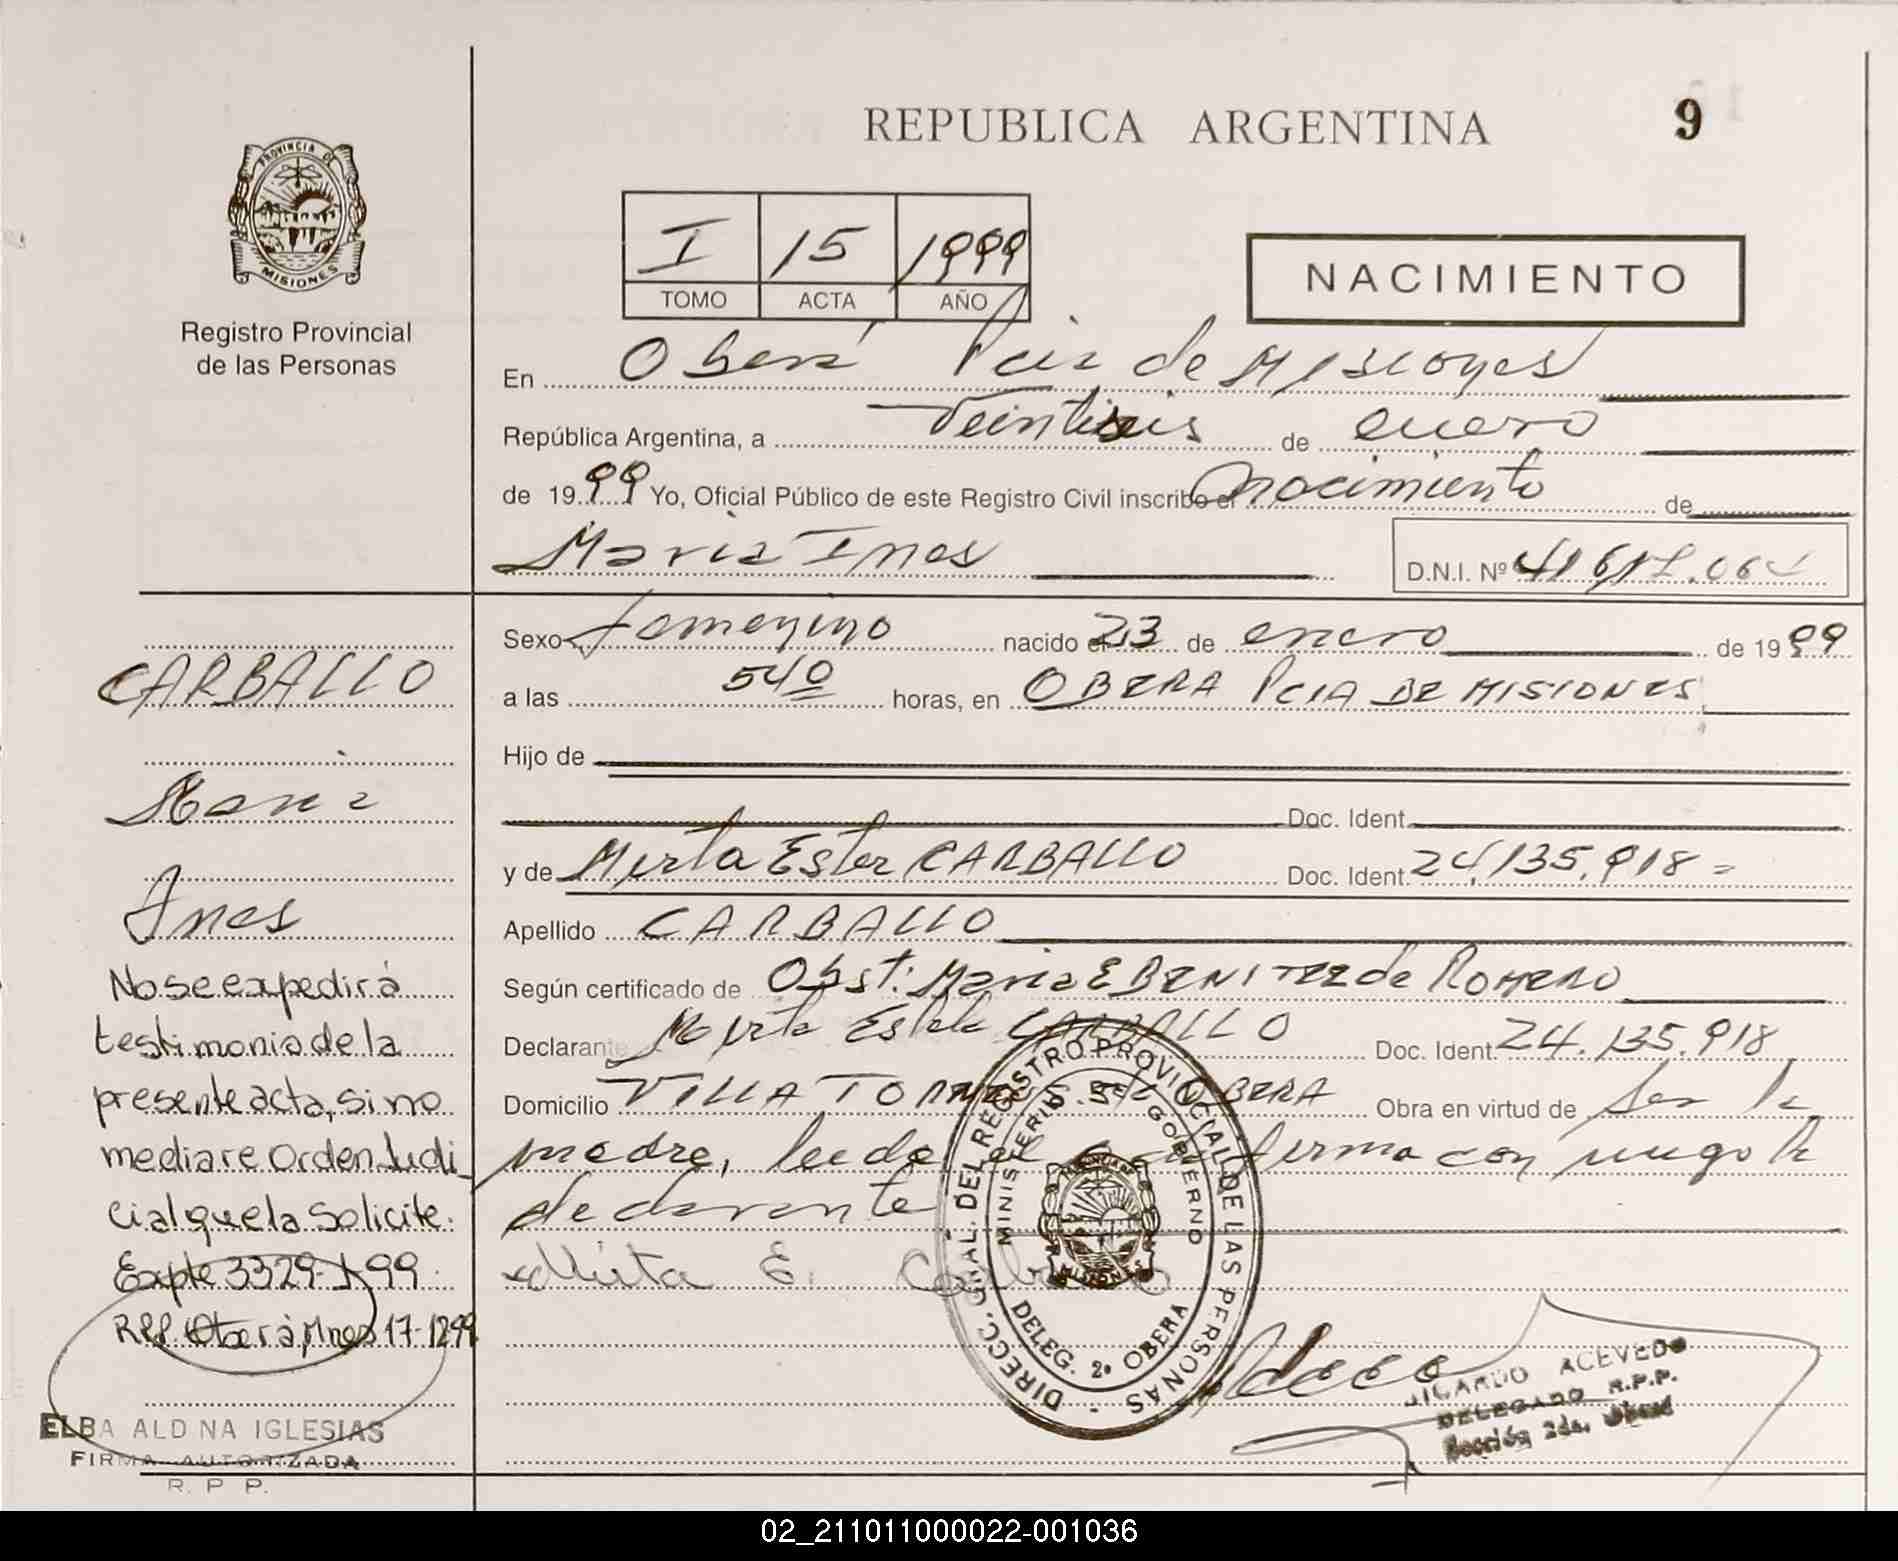 REPUBLICA ARGENTINA
9
PROVINCIA DE
MISIONES
Registro Provincial
de las Personas
I 15 1999
TOMO ACTA AÑO
NACIMIENTO
En Oberá Pcia de Misiones
República Argentina, a Veintiseis de enero
de 1999 Yo, Oficial Público de este Registro Civil inscribo el nacimiento de
Maria Ines
D.N.I. Nº
Sexo femenino nacido el 23 de enero de 1999
a las 540 horas, en OBERA PCIA DE MISIONES
Hijo de
Doc. Ident.
y de Mirta Ester CARBALLO Doc. Ident. 24.135.918=
Apellido CARBALLO
Según certificado de Obst: Maria E BENITEZ de ROMERO
Declarante Mirta CARBALLO Doc. Ident. 24.135.918
Domicilio VILLA OBERA Obra en virtud de Ser la
madre, leida el firma conmigo la
declarante
Mirta E. Carballo
CARBALLO
Maria
Ines
No se expedirá
testimonio de la
presente acta, si no
mediare Orden Judi
cial que la Solicite.
Expte 3329-J-99
R.P.P. Oberá, Mnes 17-1299
ELBA ALDINA IGLESIAS
FIRMA AUTORIZADA
R. P P.
DIRECC. GRAL. DEL REGISTRO PROVICIAL DE LAS PERSONAS -
MINISTERIO DE GOBIERNO
MISIONES
DELEG. 2º OBERA
RICARDO ACEVEDO
DELEGADO R.P.P.
Sección 2da. Oberá
02_211011000022-001036